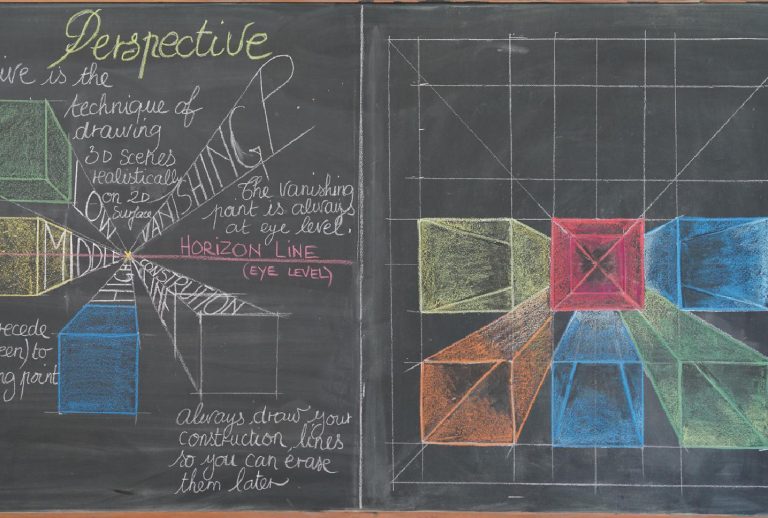 Perspective
ive is the
technique of
drawing
3D Scenes
realistically
on 2D
Surface
LOW
VANISHING P
The vanishing
point is always
at eye level.
MIDDLE
HORIZON LINE
(EYE LEVEL)
HIGH
CONSTRUCTION
LINE
recede
een) to
ng point
Always draw your
construction lines
so you can erase
them later